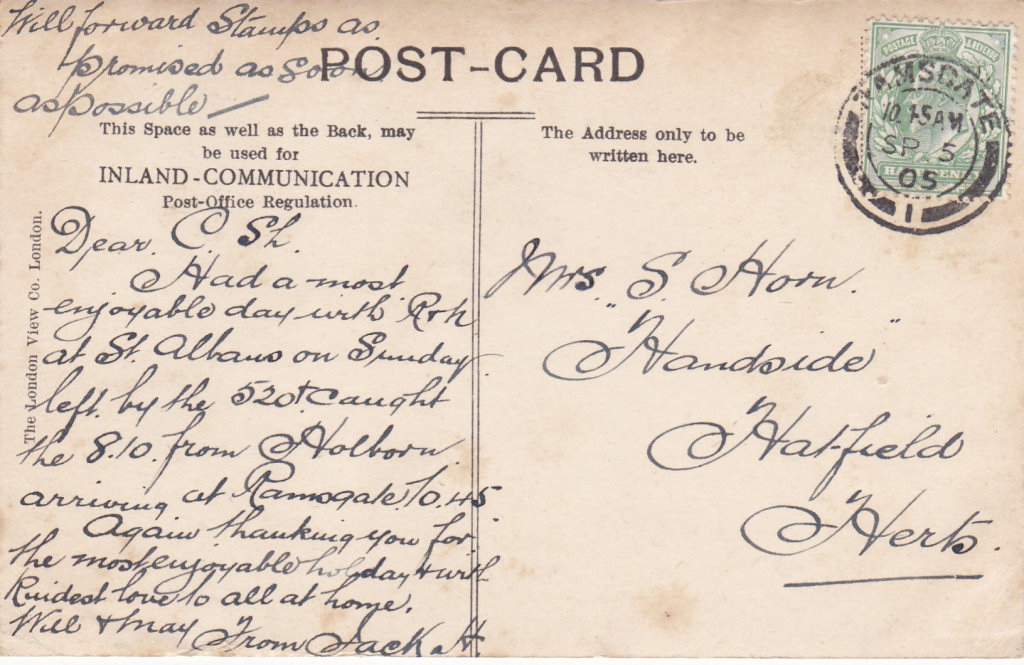 Will forward Stamps as
promised as soon
as possible —
POST-CARD
This Space as well as the Back, may
be used for
INLAND-COMMUNICATION
Post-Office Regulation.
The Address only to be
written here.
POSTAGE & REVENUE
HALFPENNY
RAMSGATE
10.45AM
SP 5
05
1
The London View Co. London.
Dear. C. Sh.
Had a most
enjoyable day with
at St. Albans on Sunday
left by the 520 & caught
the 8.10. from Holborn.
arriving at Ramsgate 10.45
Again thanking you for
the most enjoyable holiday & with
Kindest love to all at home.
Will & May From Jack H
Mrs. S. Horn.
"Handside"
Hatfield
Herts.